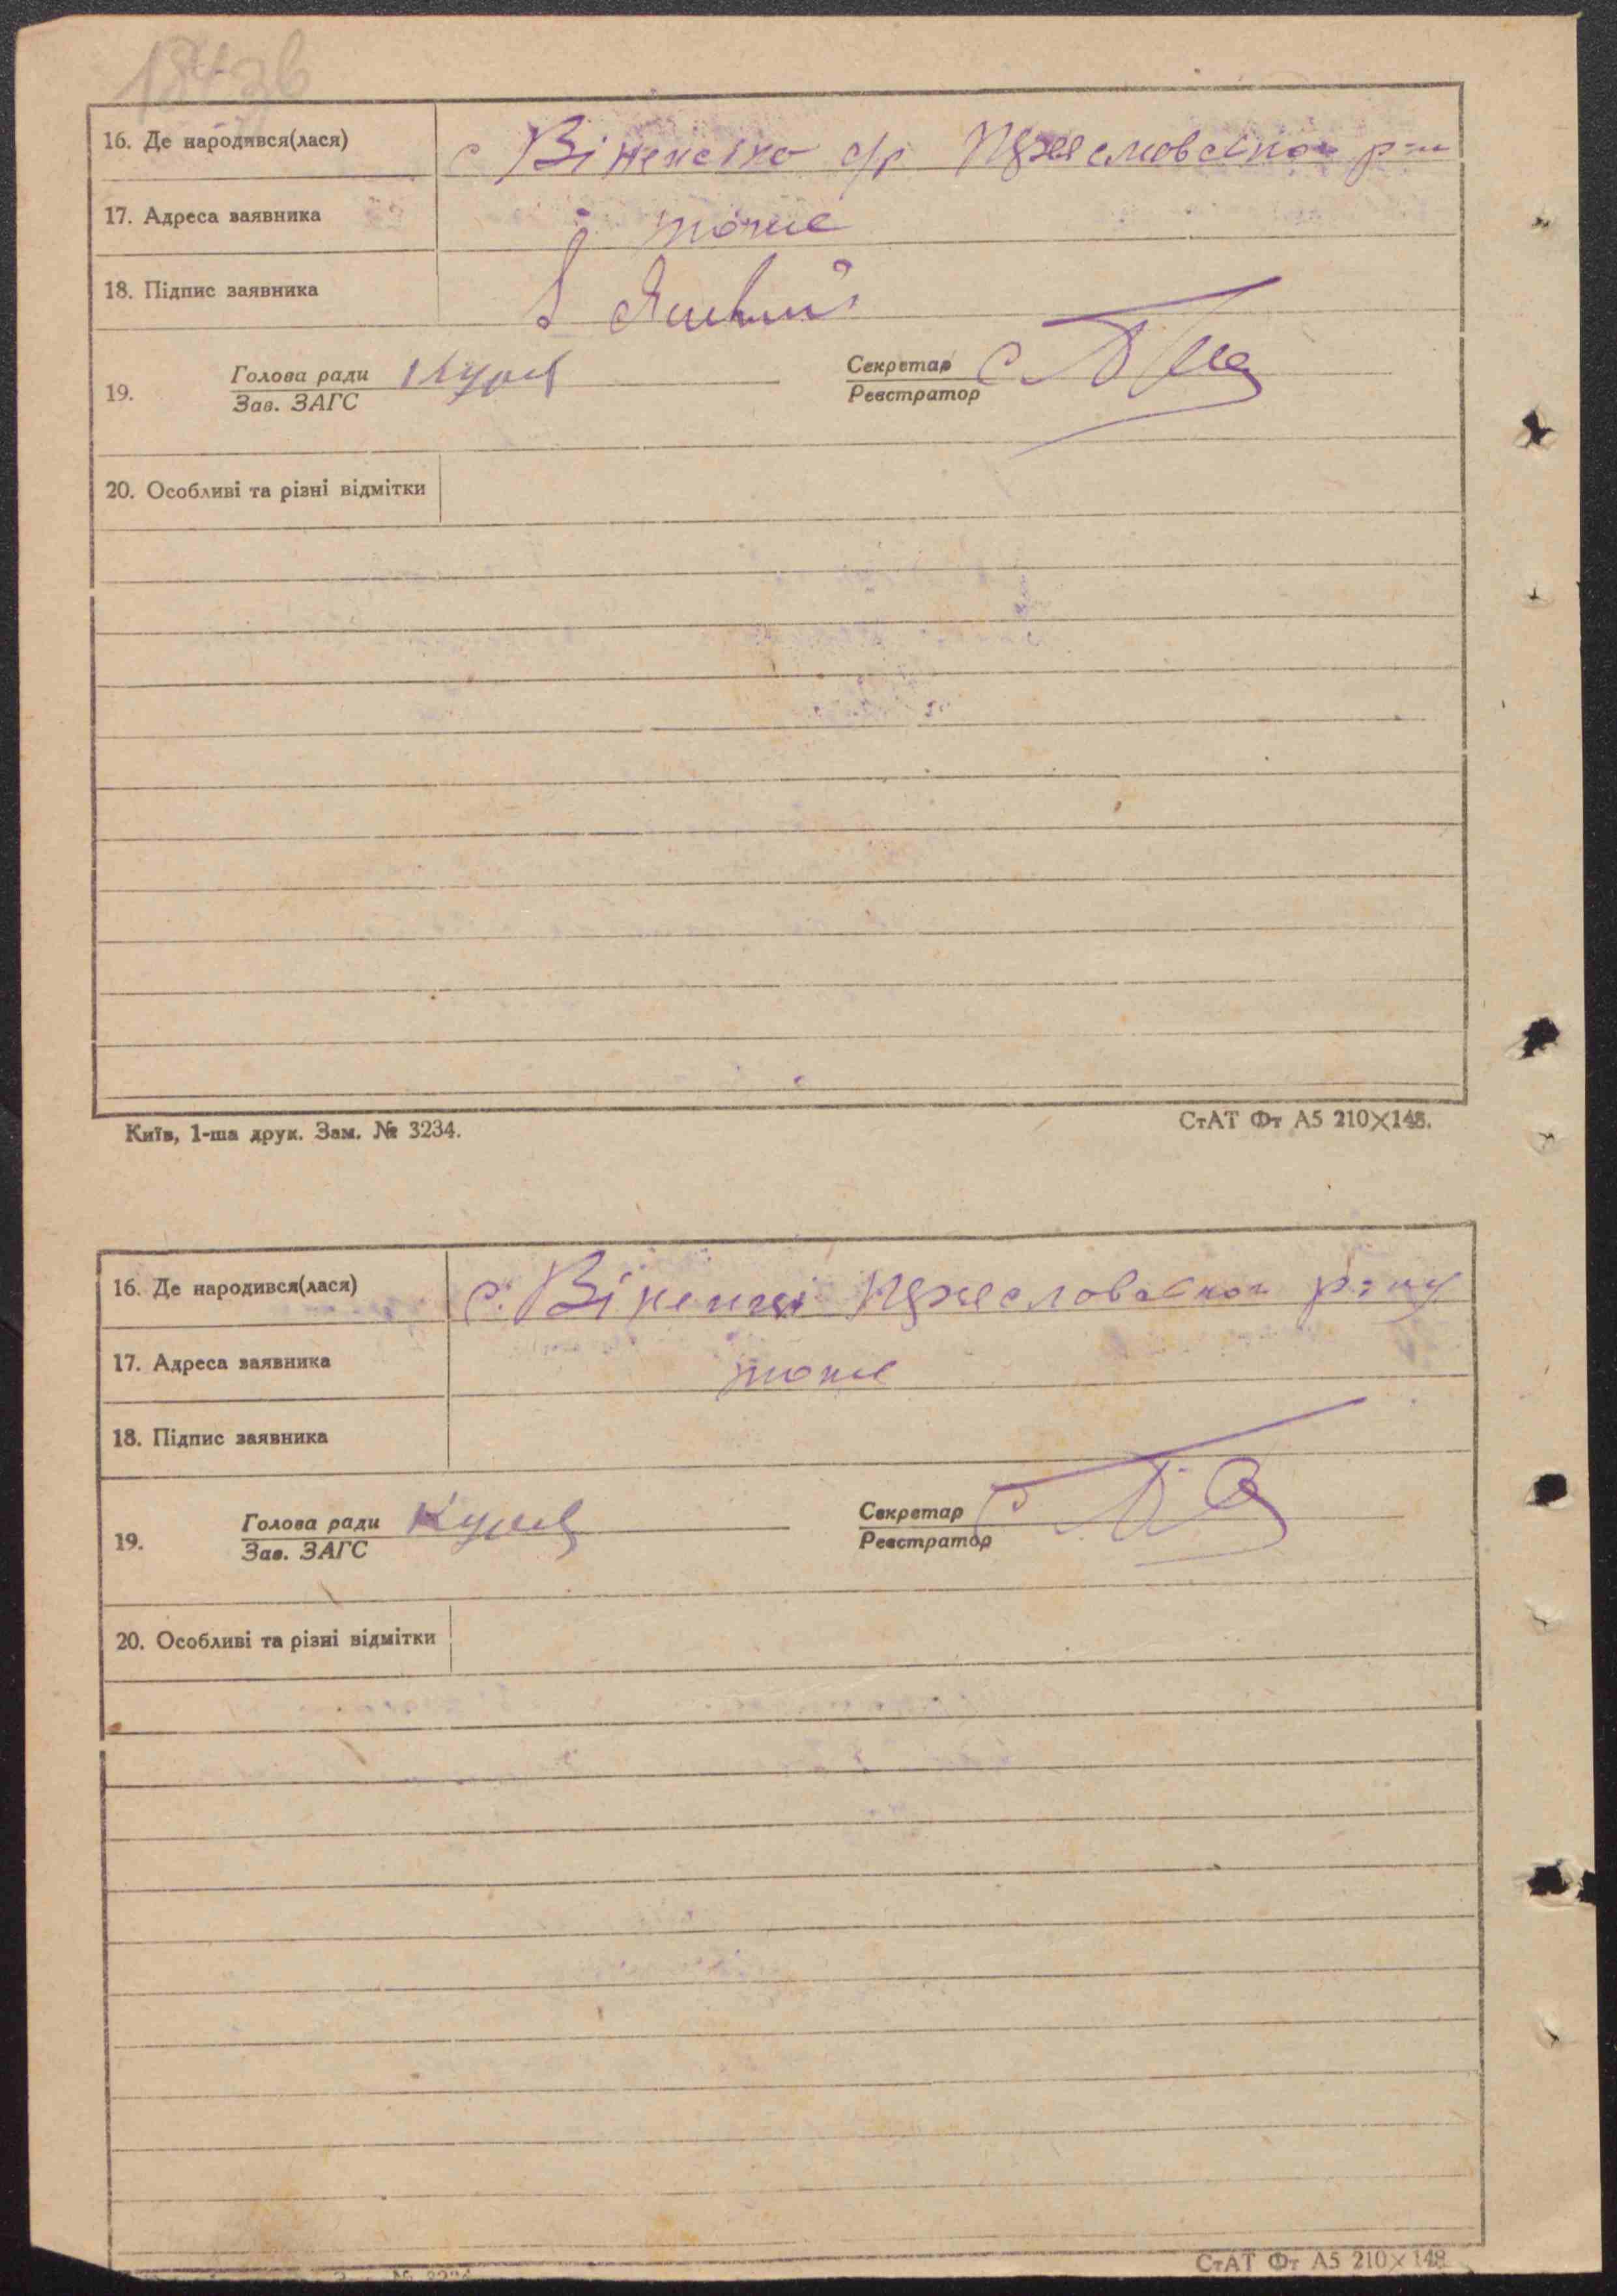 16. Де народився(лася)
с с/р р-н
17. Адреса заявника
тоже
18. Підпис заявника
Голова ради
Секретар
19.
Зав. ЗАГС
Реєстратор
20. Особливі та різні відмітки
Київ, 1-ша друк. Зам. № 3234.
СтАТ Фт А5 210×148.
16. Де народився(лася)
с. Віненці
17. Адреса заявника
тоже
18. Підпис заявника
Голова ради
Секретар
19.
Зав. ЗАГС
Реєстратор
20. Особливі та різні відмітки
СтАТ Фт А5 210×148